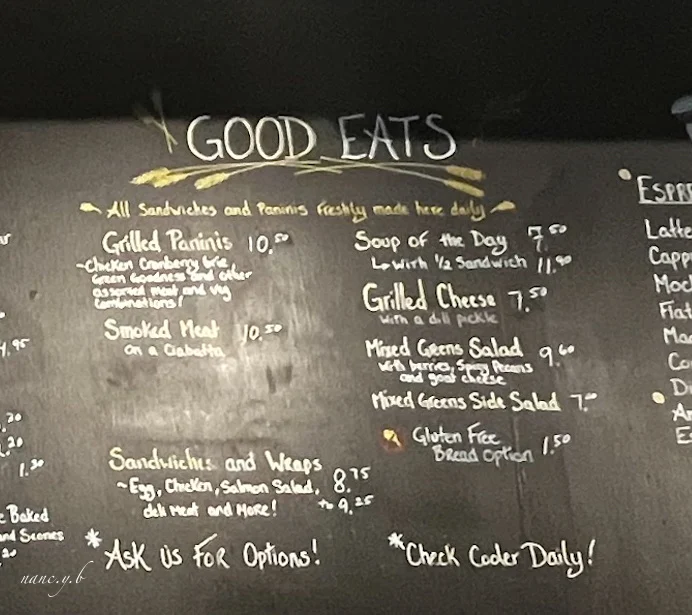 GOOD EATS
All Sandwiches and Paninis Freshly made here daily
Grilled Paninis 10.50
~Chicken Cranberry Brie,
Green Goodness and other
assorted meat and veg
combinations!
Smoked Meat 10.50
on a Ciabatta
Sandwiches and Wraps
~Egg, Chicken, Salmon Salad, 8.75
deli meat and More! to 9.25
*Ask Us For Options!
Soup of the Day 7.50
With 1/2 Sandwich 11.90
Grilled Cheese 7.50
with a dill pickle
Mixed Greens Salad 9.60
With berries, Spicy Pecans
and goat cheese
Mixed Greens Side Salad
Gluten Free
Bread Option 1.50
*Check Cooler Daily!
4.95
.20
.20
1.30
Baked
and Scones
.20
Latte
nanc.y.b